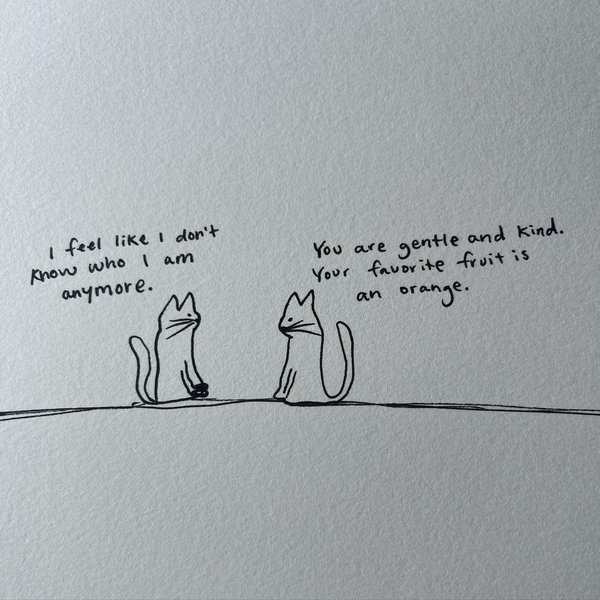 I feel like I don't
know who I am
anymore.
You are gentle and kind.
Your favorite fruit is
an orange.